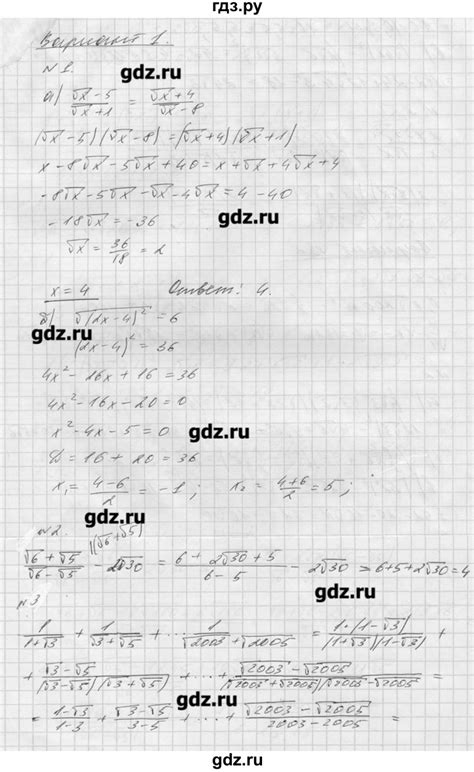 гдз.ру
Вариант 1.
№1.
gdz.ru
а) (√x - 5)/(√x + 1) = (√x + 4)/(√x - 8)
(√x - 5)(√x - 8) = (√x + 4)(√x + 1)
x - 8√x - 5√x + 40 = x + √x + 4√x + 4
-8√x - 5√x - √x - 4√x = 4 - 40
gdz.ru
-18√x = -36
√x = 36/18 = 2
gdz.ru
x = 4 Ответ: 4.
б) √(2x-4)² = 6
gdz.ru
(2x-4)² = 36
4x² - 16x + 16 = 36
4x² - 16x - 20 = 0
x² - 4x - 5 = 0
gdz.ru
D = 16 + 20 = 36
x₁ = (4-6)/2 = -1; x₂ = (4+6)/2 = 5;
gdz.ru
№2.
(√6 + √5)/(√6 - √5) |(√6+√5) - 2√30 = (6 + 2√30 + 5)/(6 - 5) - 2√30
gdz.ru
№3
1/(1+√3) + 1/(√3+√5) + ... 1/(√2003 + √2005) = +
+ (√3-√5)/((√3-√5)(√3+√5)) + ... + (√2003 - √2005)/((√2003+√2005)(√2003-√2005)) =
gdz.ru
= (1-√3)/(1-3) + (√3-√5)/(3-5) + ... + (√2003 - √2005)/(2003-2005) =
gdz.ru